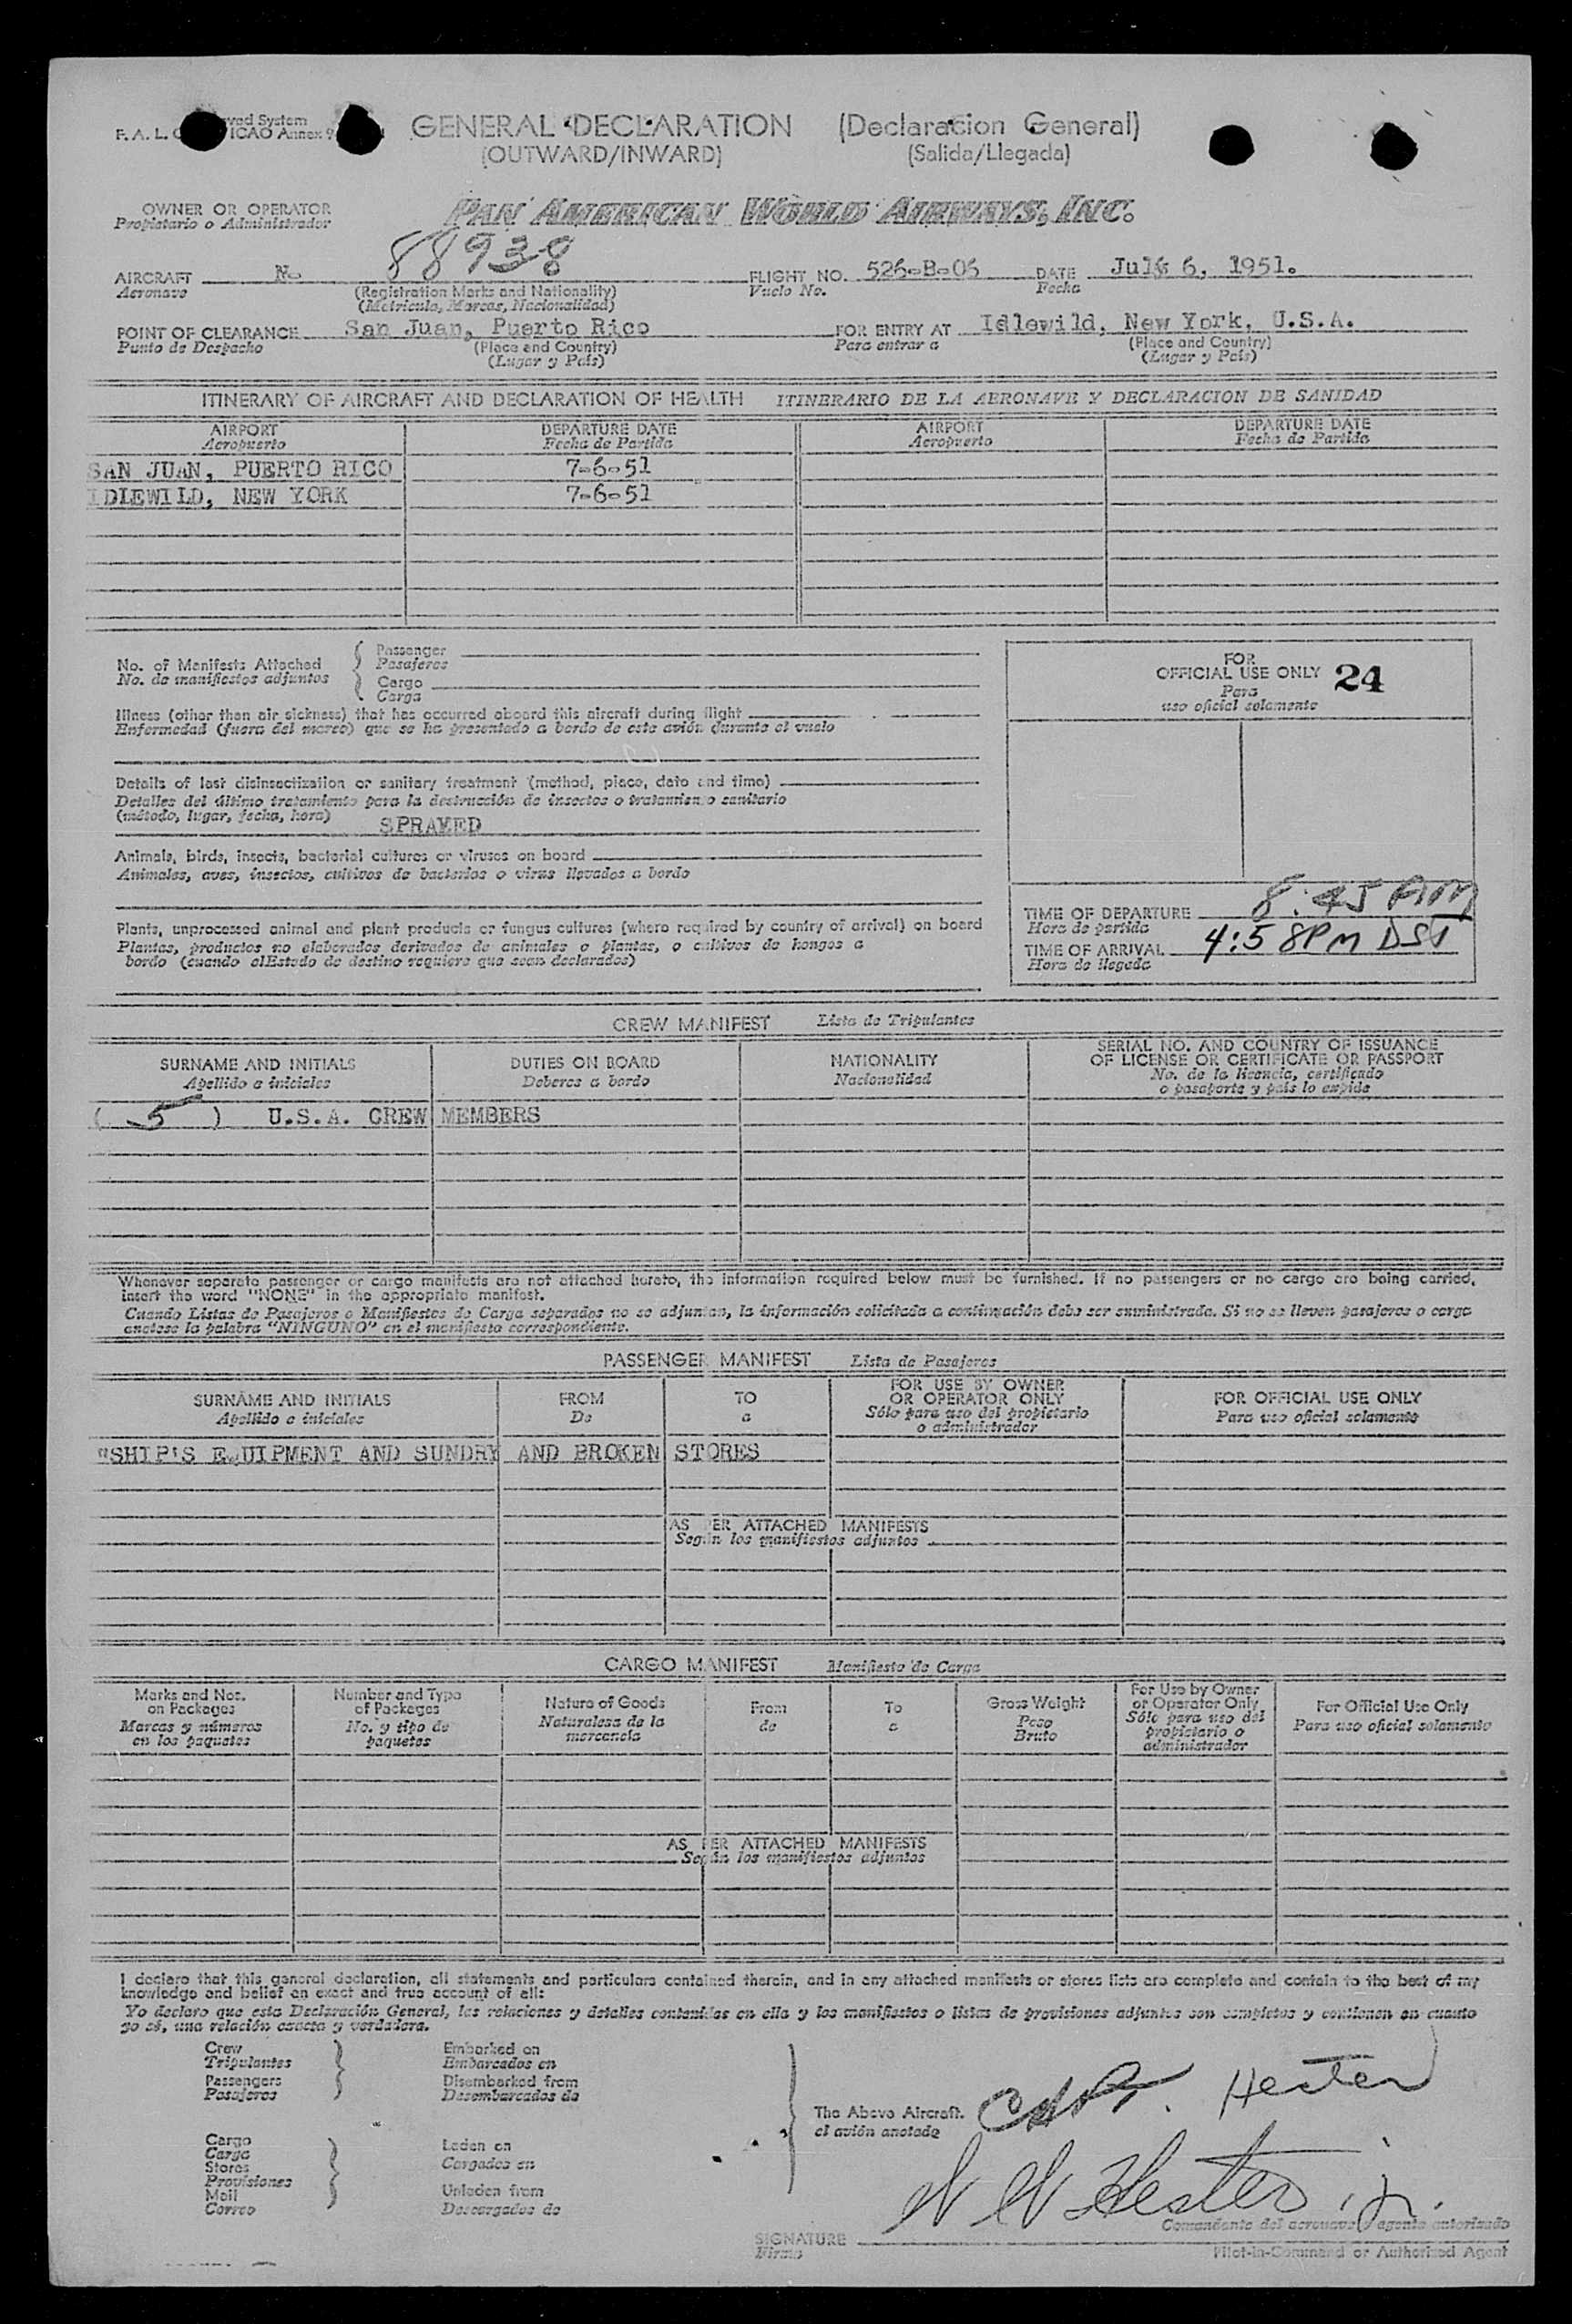 F. A. L. ICAO Annex 9
GENERAL DECLARATION (Declaracion General)
(OUTWARD/INWARD) (Salida/Llegada)
OWNER OR OPERATOR PAN AMERICAN WORLD AIRWAYS, INC.
Propietario o Administrador
AIRCRAFT N- 88938 FLIGHT NO. 526-B-06 DATE July 6, 1951.
Aeronave (Registration Marks and Nationality) Vuelo No. Fecha
(Matricula, Marcas, Nacionalidad)
POINT OF CLEARANCE San Juan, Puerto Rico FOR ENTRY AT Idlewild, New York, U.S.A.
Punto de Despacho (Place and Country) Para entrar a (Place and Country)
(Lugar y País) (Lugar y País)
ITINERARY OF AIRCRAFT AND DECLARATION OF HEALTH ITINERARIO DE LA AERONAVE Y DECLARACION DE SANIDAD
AIRPORT DEPARTURE DATE AIRPORT DEPARTURE DATE
Aeropuerto Fecha de Partida Aeropuerto Fecha de Partida
SAN JUAN, PUERTO RICO 7-6-51
IDLEWILD, NEW YORK 7-6-51
No. of Manifests Attached Passenger
No. de manifiestos adjuntos Pasajeros
Cargo
Carga
FOR
OFFICIAL USE ONLY 24
Para
uso oficial solamente
Illness (other than air sickness) that has occurred aboard this aircraft during flight
Enfermedad (fuera del mareo) que se ha presentado a bordo de este avión durante el vuelo
Details of last disinsectization or sanitary treatment (method, place, date and time)
Detalles del último tratamiento para la destrucción de insectos o tratamiento sanitario
(método, lugar, fecha, hora) SPRAYED
Animals, birds, insects, bacterial cultures or viruses on board
Animales, aves, insectos, cultivos de bacterias o virus llevados a bordo
Plants, unprocessed animal and plant products or fungus cultures (where required by country of arrival) on board
Plantas, productos no elaborados derivados de animales o plantas, o cultivos de hongos a
bordo (cuando el Estado de destino requiere que sean declarados)
TIME OF DEPARTURE 8:45 AM
Hora de partida
TIME OF ARRIVAL 4:58 PM DST
Hora de llegada
CREW MANIFEST Lista de Tripulantes
SURNAME AND INITIALS DUTIES ON BOARD NATIONALITY SERIAL NO. AND COUNTRY OF ISSUANCE
OF LICENSE OR CERTIFICATE OR PASSPORT
Apellido e iniciales Deberes a bordo Nacionalidad No. de la licencia, certificado
o pasaporte y país lo expide
( 5 ) U.S.A. CREW MEMBERS
Whenever separate passenger or cargo manifests are not attached hereto, the information required below must be furnished. If no passengers or no cargo are being carried,
insert the word "NONE" in the appropriate manifest.
Cuando Listas de Pasajeros o Manifiestos de Carga separados no se adjuntan, la información solicitada a continuación debe ser suministrada. Si no se lleven pasajeros o carga
anotese la palabra "NINGUNO" en el manifiesto correspondiente.
PASSENGER MANIFEST Lista de Pasajeros
SURNAME AND INITIALS FROM TO FOR USE BY OWNER OR OPERATOR ONLY FOR OFFICIAL USE ONLY
Apellido e iniciales De a Sólo para uso del propietario o administrador Para uso oficial solamente
"SHIP'S EQUIPMENT AND SUNDRY AND BROKEN STORES
AS PER ATTACHED MANIFESTS
Según los manifiestos adjuntos
CARGO MANIFEST Manifiesto de Carga
Marks and Nos. on Packages Number and Type of Packages Nature of Goods From To Gross Weight For Use by Owner or Operator Only For Official Use Only
Marcas y números en los paquetes No. y tipo de paquetes Naturalesa de la mercancía de a Peso Bruto Sólo para uso del propietario o administrador Para uso oficial solamente
AS PER ATTACHED MANIFESTS
Según los manifiestos adjuntos
I declare that this general declaration, all statements and particulars contained therein, and in any attached manifests or stores lists are complete and contain to the best of my
knowledge and belief an exact and true account of all:
Yo declaro que esta Declaración General, las relaciones y detalles contenidas en ella y los manifiestos o listas de provisiones adjuntos son completos y contienen en cuanto
yo sé, una relación exacta y verdadera.
Crew Embarked on
Tripulantes Embarcados en
Passengers Disembarked from
Pasajeros Desembarcados de
The Above Aircraft. CAPT. Hester
el avión anotado
Cargo Laden on
Carga Cargados en
Stores
Provisiones
Mail Unladen from
Correo Descargados de
W W Hester, jr.
Comandante del aeronave y agente autorizado
SIGNATURE
Firma Pilot-in-Command or Authorized Agent